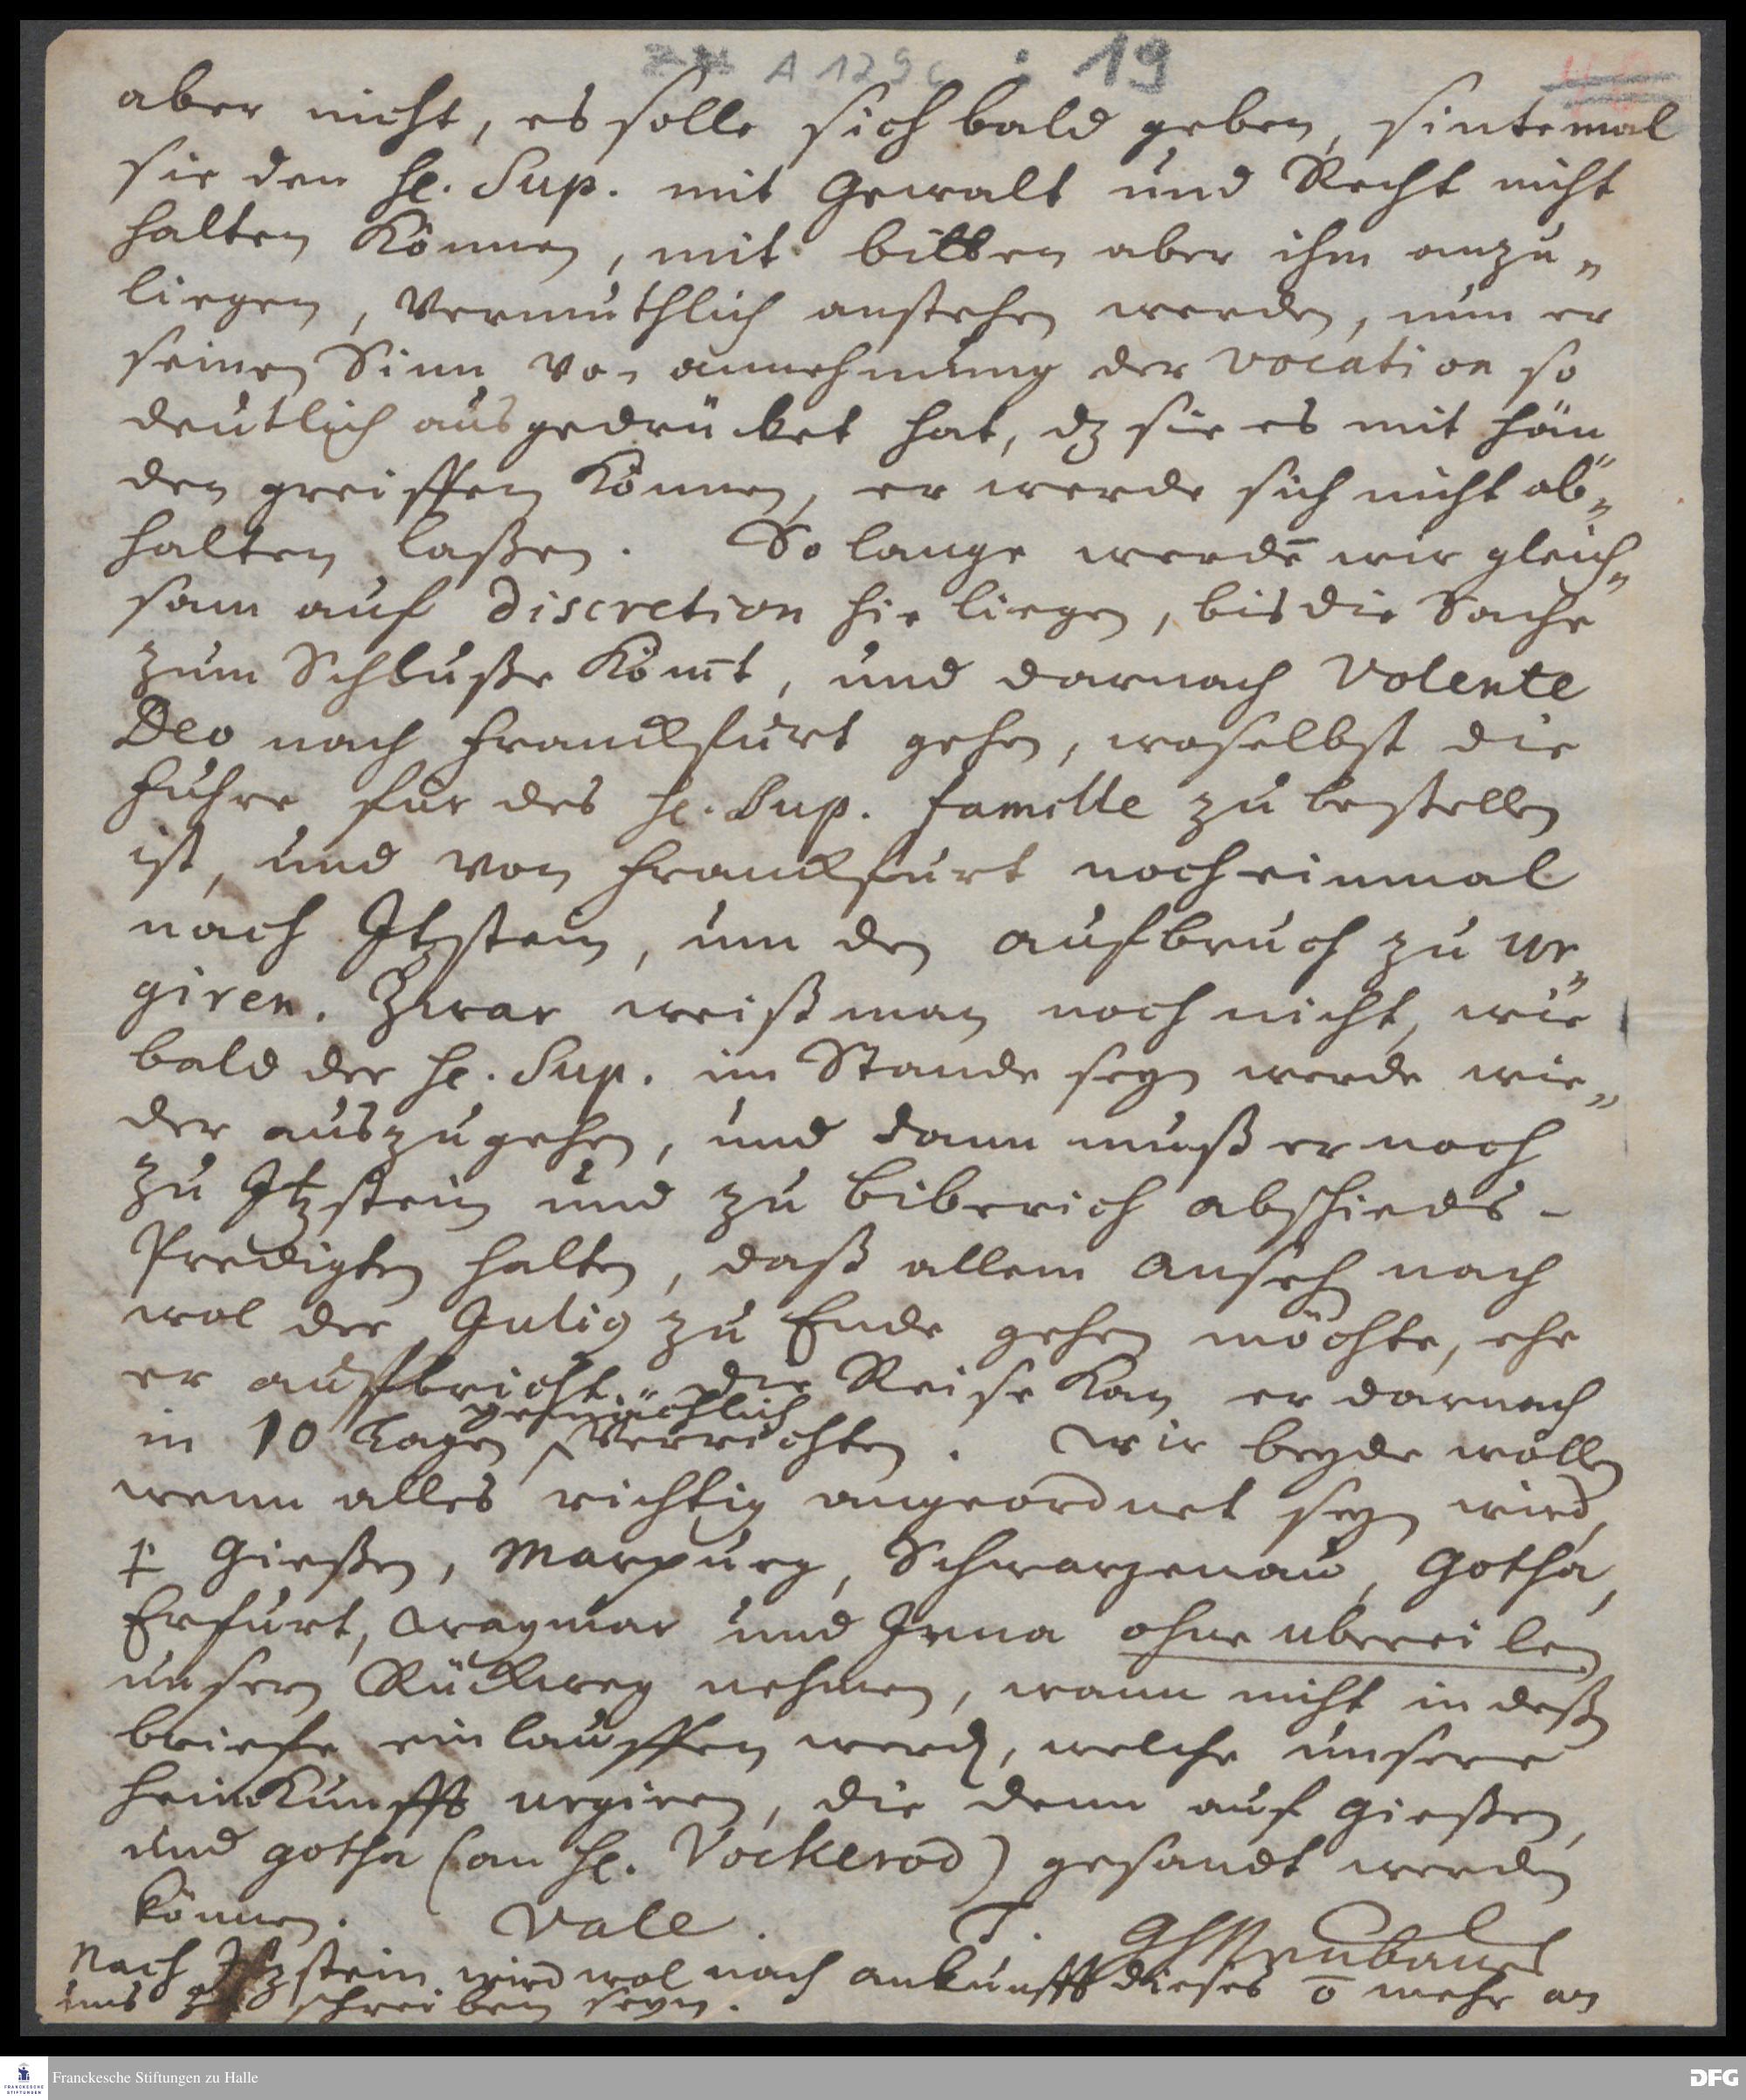 A 129c : 19
aber nicht, es solle sich bald geben, sintemal
sie den H. Sup. mit Gewalt und Recht nicht
halten können, mit bitten aber ihm anzu„
liegen, vermuthlich anstehen werden, nun er
seinen Sinn von annehmung der vocation so
deutlich ausgedrücket hat, dz sie es mit hän„
den greiffen können, er werde sich nicht ab„
halten laßen. So lange werdē wir gleich„
sam auf discretion hie liegen, bis die Sache
zum Schluße kōmt, und darnach volente
Deo nach Franckfurt gehen, woselbst die
Fuhre für des H. Sup. familie zu bestellen
ist, und von Franckfurt noch einmal
nach Itzstein, um den aufbruch zu ur„
giren. Zwar weiß man noch nicht, wie
bald der H. Sup. im Stande seyn werde wie„
der auszugehen, und dann muß er noch
zu Itzstein und zu Biberich abschieds-
Predigten halten, daß allem Ansehen nach
wol der Julius zu Ende gehen möchte, ehe
er aufbricht. Die Reise kan er darnach
gemächlich
in 10 Tagen verrichten. Wir beyde wollen
wenn alles richtig angeordnet seyn wird,
Gießen, Marpurg, Schwarzenau, Gotha,
Erfurt, Waymar und Jena ohne übereilen
unsern Rückweg nehmen, wann nicht indeßen
briefe einlauffen werden, welche unsere
heimkunfft urgiren, die denn auf Gießen,
und Gotha (an H. Vockerod) gesandt werden
können. Vale. T. GHNeubauer
Nach Itzstein wird wol nach ankunfft dieses ō mehr an
uns zu schreiben seyn.
Franckesche Stiftungen zu Halle
DFG